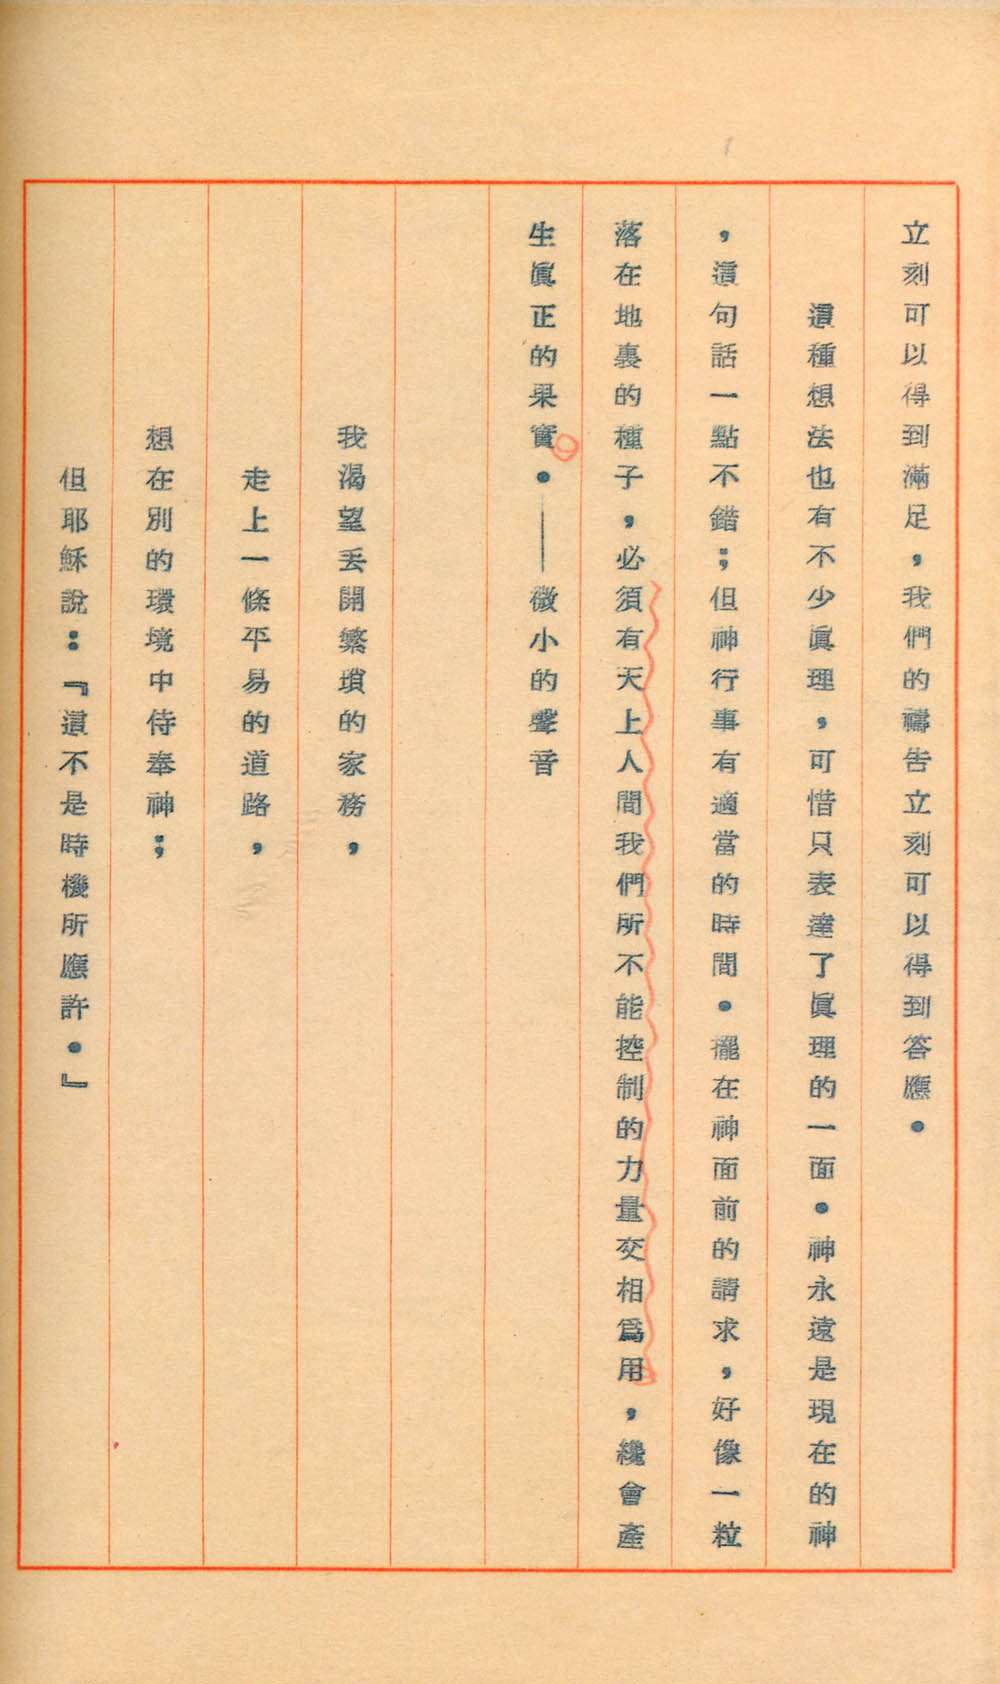 立刻可以得到滿足，我們的禱告立刻可以得到答應。
這種想法也有不少眞理，可惜只表達了眞理的一面。神永遠是現在的神
，這句話一點不錯；但神行事有適當的時間。擺在神面前的請求，好像一粒
落在地裏的種子，必須有天上人間我們所不能控制的力量交相爲用，纔會產
生眞正的果實。——微小的聲音
我渴望丢開繁瑣的家務，
走上一條平易的道路，
想在別的環境中侍奉神；
但耶穌說：『這不是時機所應許。』